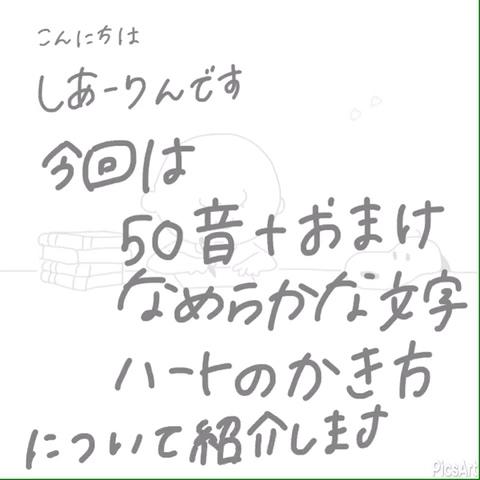 こんにちは
しあーりんです
今回は
50音+おまけ
なめらかな文字
ハートのかき方
について紹介します
PicsArt